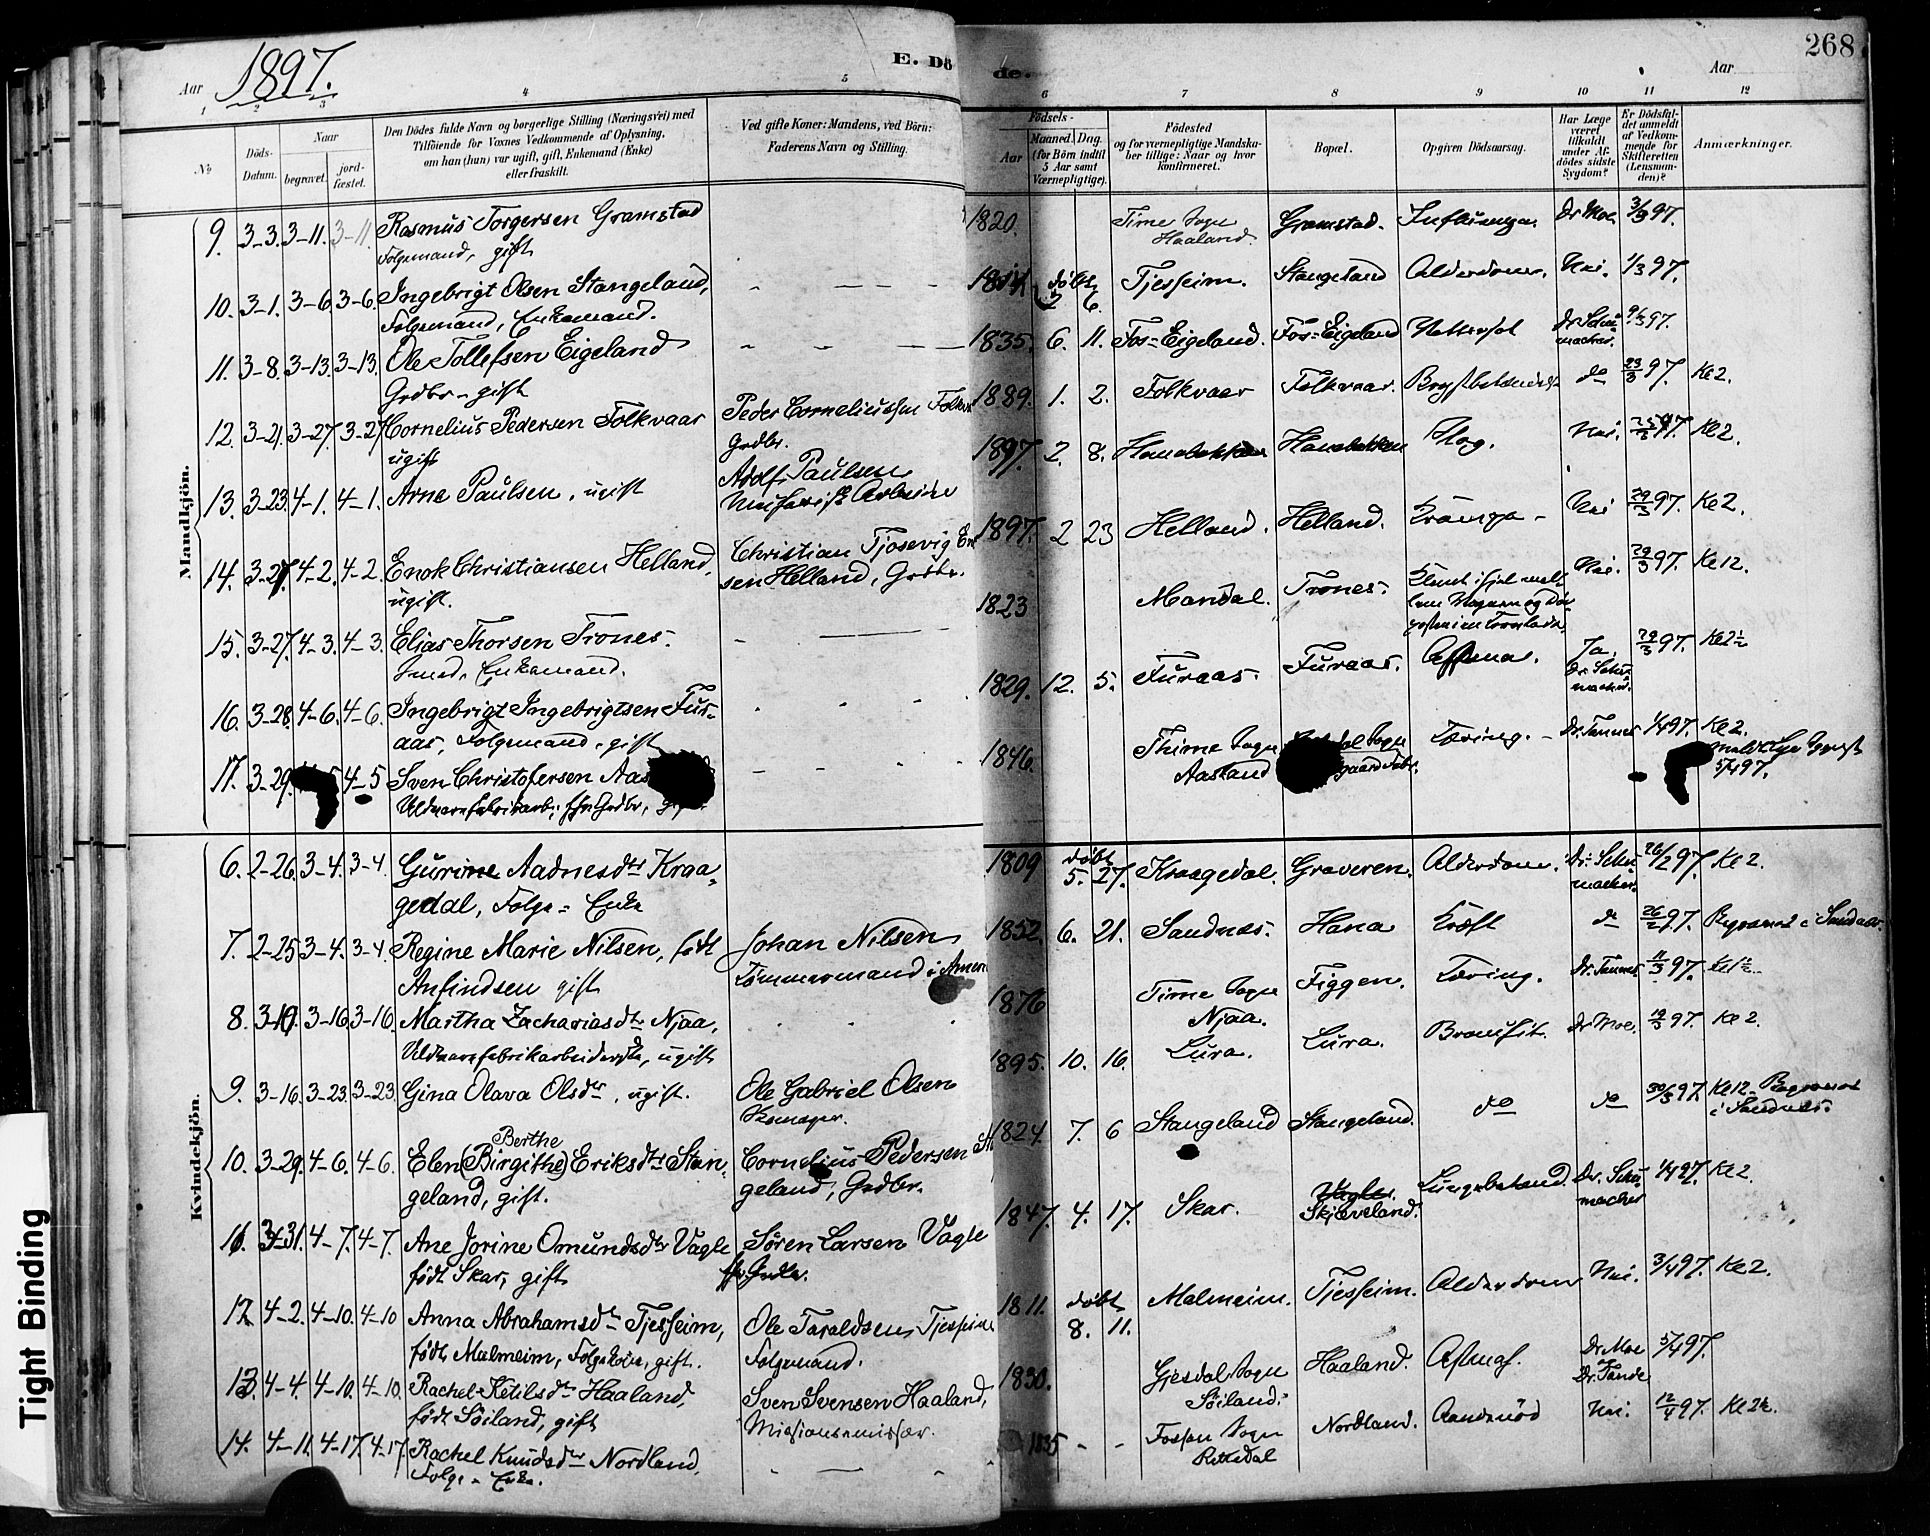 1897.
E. Dö
de.
268
Aar
Aar
1 2 3 4 5 6 7 8 9 10 11 12
No
Döds-Datum.
Naar
begravet.
jord-fæstet.
Den Dödes fulde Navn og borgerlige Stilling (Næringsvei) med
Tilföiende for Voxnes Vedkommende af Oplysning,
om han (hun) var ugift, gift, Enkemand (Enke)
eller fraskilt.
Ved gifte Koner: Mandens, ved Börn:
Faderens Navn og Stilling.
Födsels-
Aar
Maaned. Dag.
(for Börn indtil
5 Aar samt
Værnepligtige).
Födested
og for værnepligtige Mandska-
ber tillige: Naar og hvor
konfirmeret.
Bopæl.
Opgiven Dödsaarsag.
Har Læge
været
tilkaldt
under Af-
dödes sidste
Sygdom?
Er Dödsfal-
det anmeldt
af Vedkom-
mende for
Skifteretten
(Lensman-
den)?
Anmærkninger.
Mandkjön.
9. 3-3. 3-11. 3-11. Rasmus Torgersen Gramstad 1820. Time Sogn Gramstad. Influenza. Dr Moe 3/3 97.
Folgemand, gift Haaland.
10. 3-1. 3-6. 3-6. Ingebrigt Olsen Stangeland, döbt 2 6. Tjesseim. Stangeland Alderdom. Nei. 1/3 97.
Folgemand, Enkemand.
11. 3-8. 3-13. 3-13. Ole Tollefsen Eigeland 1835. 6. 11. Fos-Eigeland. Fos-Eigeland 9/3 97.
Grdbr - gift
12. 3-21. 3-27. 3-27 Cornelius Pedersen Folkvaar Peder Corneliussen 1889. 1. 2. Folkvaar Folkvaar. Brystbetændelse do 23/3 97. Ke 2.
ugift Grdbr.
13. 3-23. 4-1. 4-1. Arne Paulsen, ugift Adolf Paulsen 1897. 2. 8. Hanabakken Hanabakken Slag. Nei. Ke 2.
14. 3-27. 4-2. 4-2. Enok Christiansen Helland, Christian Tjosevig 1897. 2 23 Helland. Helland. Krampe - Nei 29/3 97. Ke 2.
ugift. sen Helland, Grdbr.
15. 3-27. 4-3. 4-3. Elias Thorsen Trones. 1823 Mandal. Trones. Nei. 29/3 97. Ke 12.
Smed, Enkemand.
16. 3-28. 4-6. 4-6. Ingebrigt Ingebrigtsen Fur- 1829. 12. 5. Furaas. Furaas. Asthma. Ja. 29/3 97. Ke 2½
aas, Folgemand, gift
17. 3-29. 4-5 Sven Christofersen 1846. Thime Sogn Tæring. - Dr. Tannes 1/4 97. Ke 2.
Uldvarefabrikarb., Grdbr, Aasland 5/4 97.
Kvindekjön.
6. 2-26. 3-4. 3-4. Gurine Aadnesdtr Kraa- 1809 döbt 5. 27. Kraagedal. Graveren. Alderdom. Dr. Schu- 26/2 97. Ke 2.
gedal, Folge-Enke macher.
7. 2-25 3-4. 3-4. Regine Marie Nilsen, födt Johan Nilsen 1852. 6. 21. Sandnæs. Hana Kræft do 26/2 97. Begravet i Sandnæs.
Anfindsen gift Tömmermand i
8. 3-16. 3-16. Martha Zachariasdtr Njaa, 1876 Time Sogn Figgen. Tæring. Dr. Tannes 11/3 97. Ke 1½
Uldvarefabrikarbeiderske, ugift Njaa.
9. 3-16. 3-23. 3-23. Gina Olava Olsdtr, ugift. Ole Gabriel Olsen 1895. 10. 16. Lura. Lura. Dr Moe. 19/3 97. Ke 2.
Skomager.
10. 3-29. 4-6. 4-6. Elen (Birgithe) Eriksdtr Stan- Cornelius Pedersen 1824. 7. 6 Stangeland Stangeland. do do 30/3 97 Ke 12. Begravet
Berthe
geland, gift. geland, Grdbr. i Sandnes.
11. 3-31. 4-7. 4-7. Ane Jorine Omundsdtr Vagle Sören Larsen Vagle 1847. 4. 17. Skar. Vagle. Dr. Schu- 1/4 97. Ke 2
födt Skar, gift Skjæveland. macher
12. 4-2. 4-10. 4-10 Anna Abrahamsdtr Tjesseim, Ole Taraldsen Tjesseim 1811. döbt 8. 11. Malmeim. Tjesseim. Alderdom Nei. 3/4 97. Ke 2.
födt Malmeim, Folgekone, gift. Folgemand.
13. 4-4. 4-10. 4-10. Rachel Ketilsdtr Haaland, Sven Svensen Haaland, 1830. Gjesdal Sogn Haaland. Dr. Moe 5/4 97.
födt Söiland, gift Missionsemissær. Söiland.
14. 4-11. 4-17. 4-17. Rachel Knudsdtr Nordland, 1835 - - Fossan Sogn Nordland. Aandenöd Nei. 12/4 97. Ke 2½.
Folge-Enke.
Tight Binding